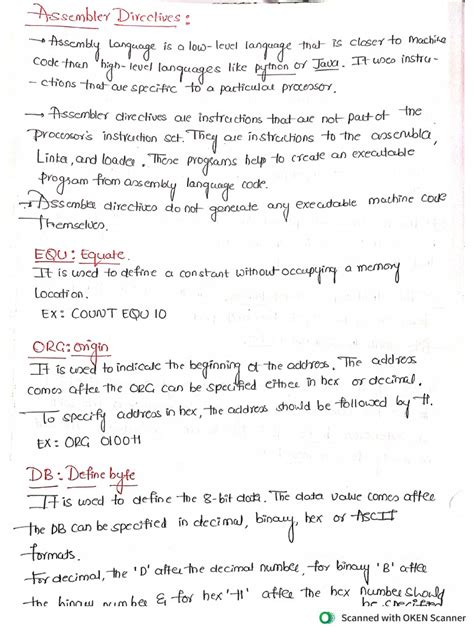 Assembler Directives :
→ Assembly Language is a low-level language that is closer to machine
code than high-level languages like python or Java. It uses instru-
-ctions that are specific to a particular processor.
→ Assembler directives are instructions that are not part of the
Processor's instruction set. They are instructions to the assembler,
Linker, and loader. These programs help to create an executable
program from assembly language code.
→ Assembler directives do not generate any executable machine code
Themselves.
EQU : Equate.
It is used to define a constant without occupying a memory
location.
EX: COUNT EQU 10
ORG: origin
It is used to indicate the beginning of the address. The address
comes after the ORG can be specified either in hex or decimal.
To specify address in hex, the address should be followed by H.
EX: ORG 0100H
DB : Define byte
It is used to define the 8-bit data. The data value comes after
the DB can be specified in decimal, binary, hex or ASCII
formats.
For decimal, the 'D' after the decimal number, for binary 'B' after
the binary number & for hex 'H' after the hex number should
be
Scanned with OKEN Scanner